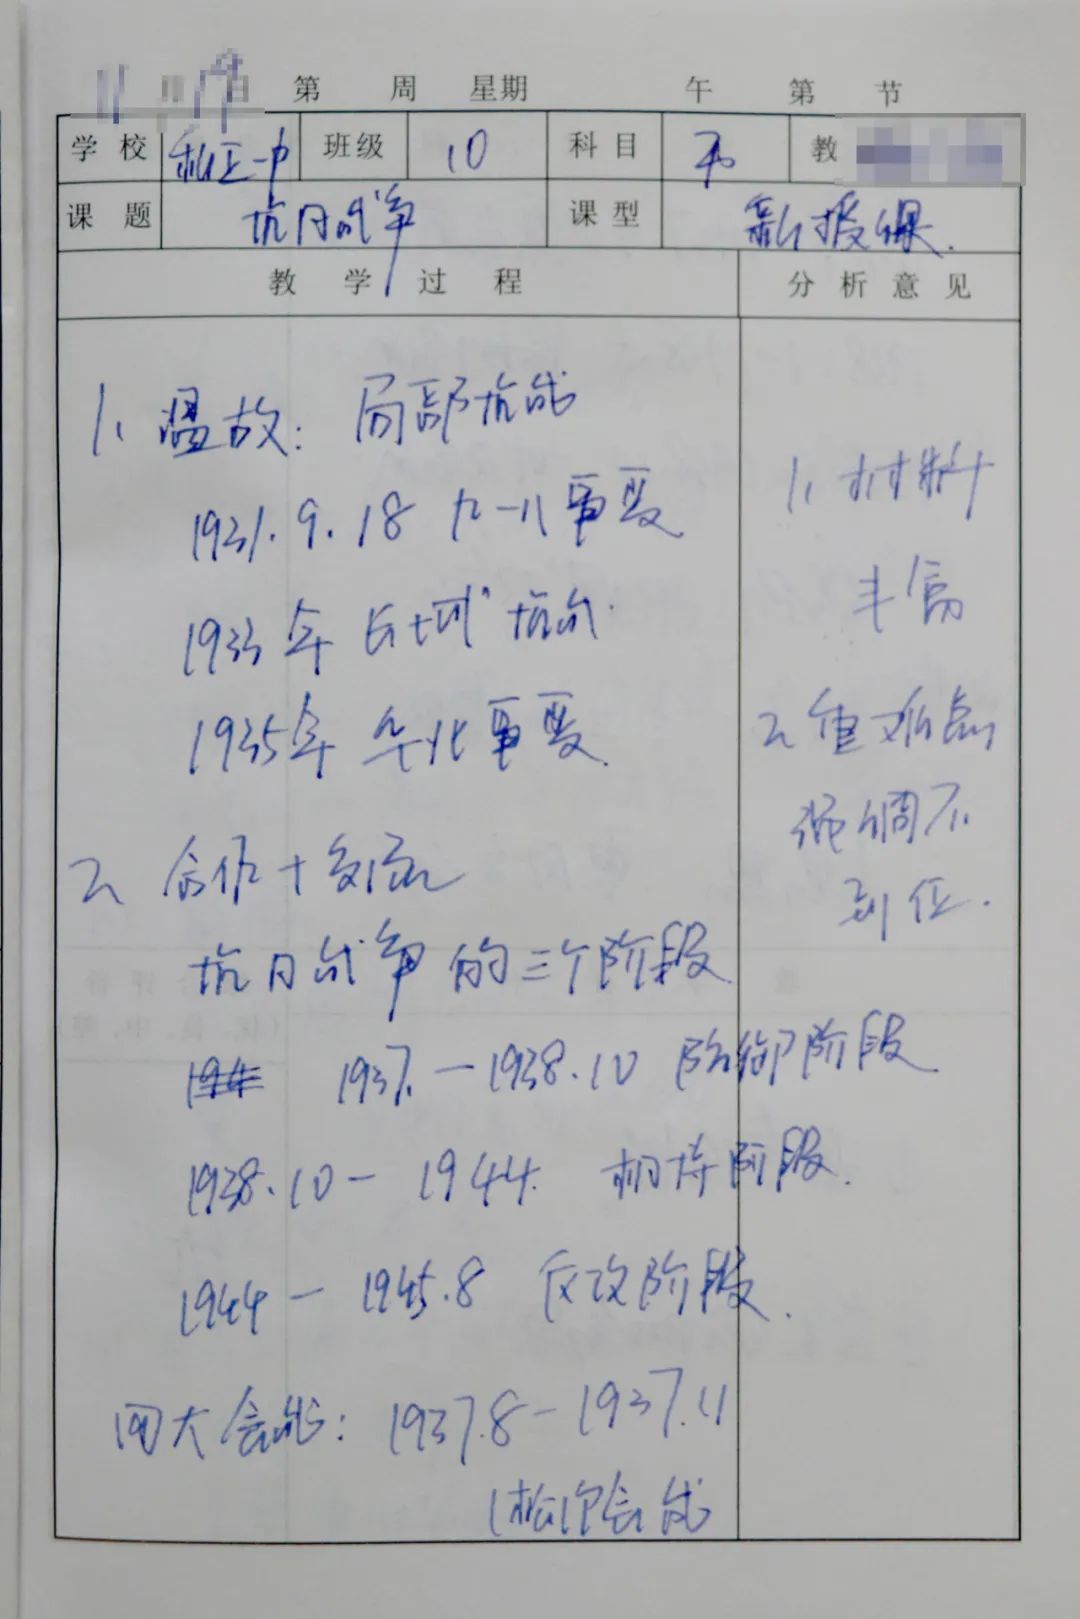 11月19日 第 周 星期 午 第 节
学校 一中 班级 10 科目 历 教
课题 抗日战争 课型 新授课.
教学过程 分析意见
1、温故：局部抗战
1931.9.18 九一八事变
1933年 长城抗战.
1935年 华北事变
2、合作+交流
抗日战争的三个阶段
1937.—1938.10 防御阶段
1938.10— 1944. 相持阶段.
1944 — 1945.8 反攻阶段.
四大会战：1937.8—1937.11
(松沪会战
1、材料
丰富
2、重难点
强调不
到位.